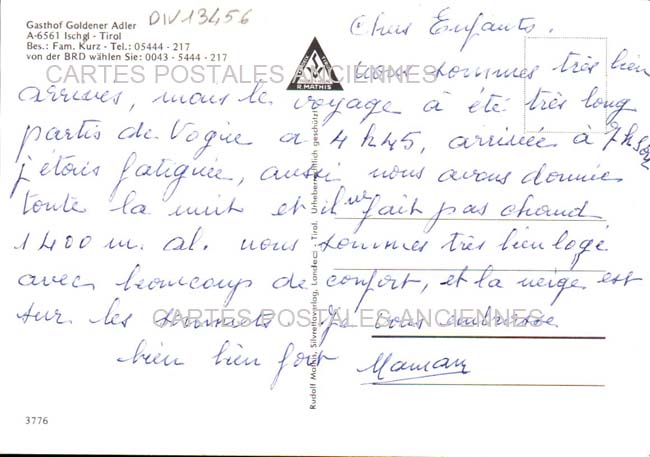 Gasthof Goldener Adler
A-6561 Ischgl - Tirol
Bes.: Fam. Kurz - Tel.: 05444 - 217
von der BRD wählen Sie: 0043 - 5444 - 217
DIV13456
R. MATHIS
CARTES POSTALES ANCIENNES
Chers Enfants.
nous sommes très bien
arrivés, mais le voyage à été très long
partis de Vogüe a 4h45, arrivée à 7h soir
j'étais fatiguée, aussi nous avons dormie
toute la nuit et il ne fait pas chaud
1400 m. al. nous sommes très bien logé
avec beaucoup de confort, et la neige est
sur les sommets. Je vous embrasse
bien bien fort
Maman
CARTES POSTALES ANCIENNES
Rudolf Mathis, Silvrettaverlag, Landeck - Tirol. Urheberrechtlich geschützt!
3776